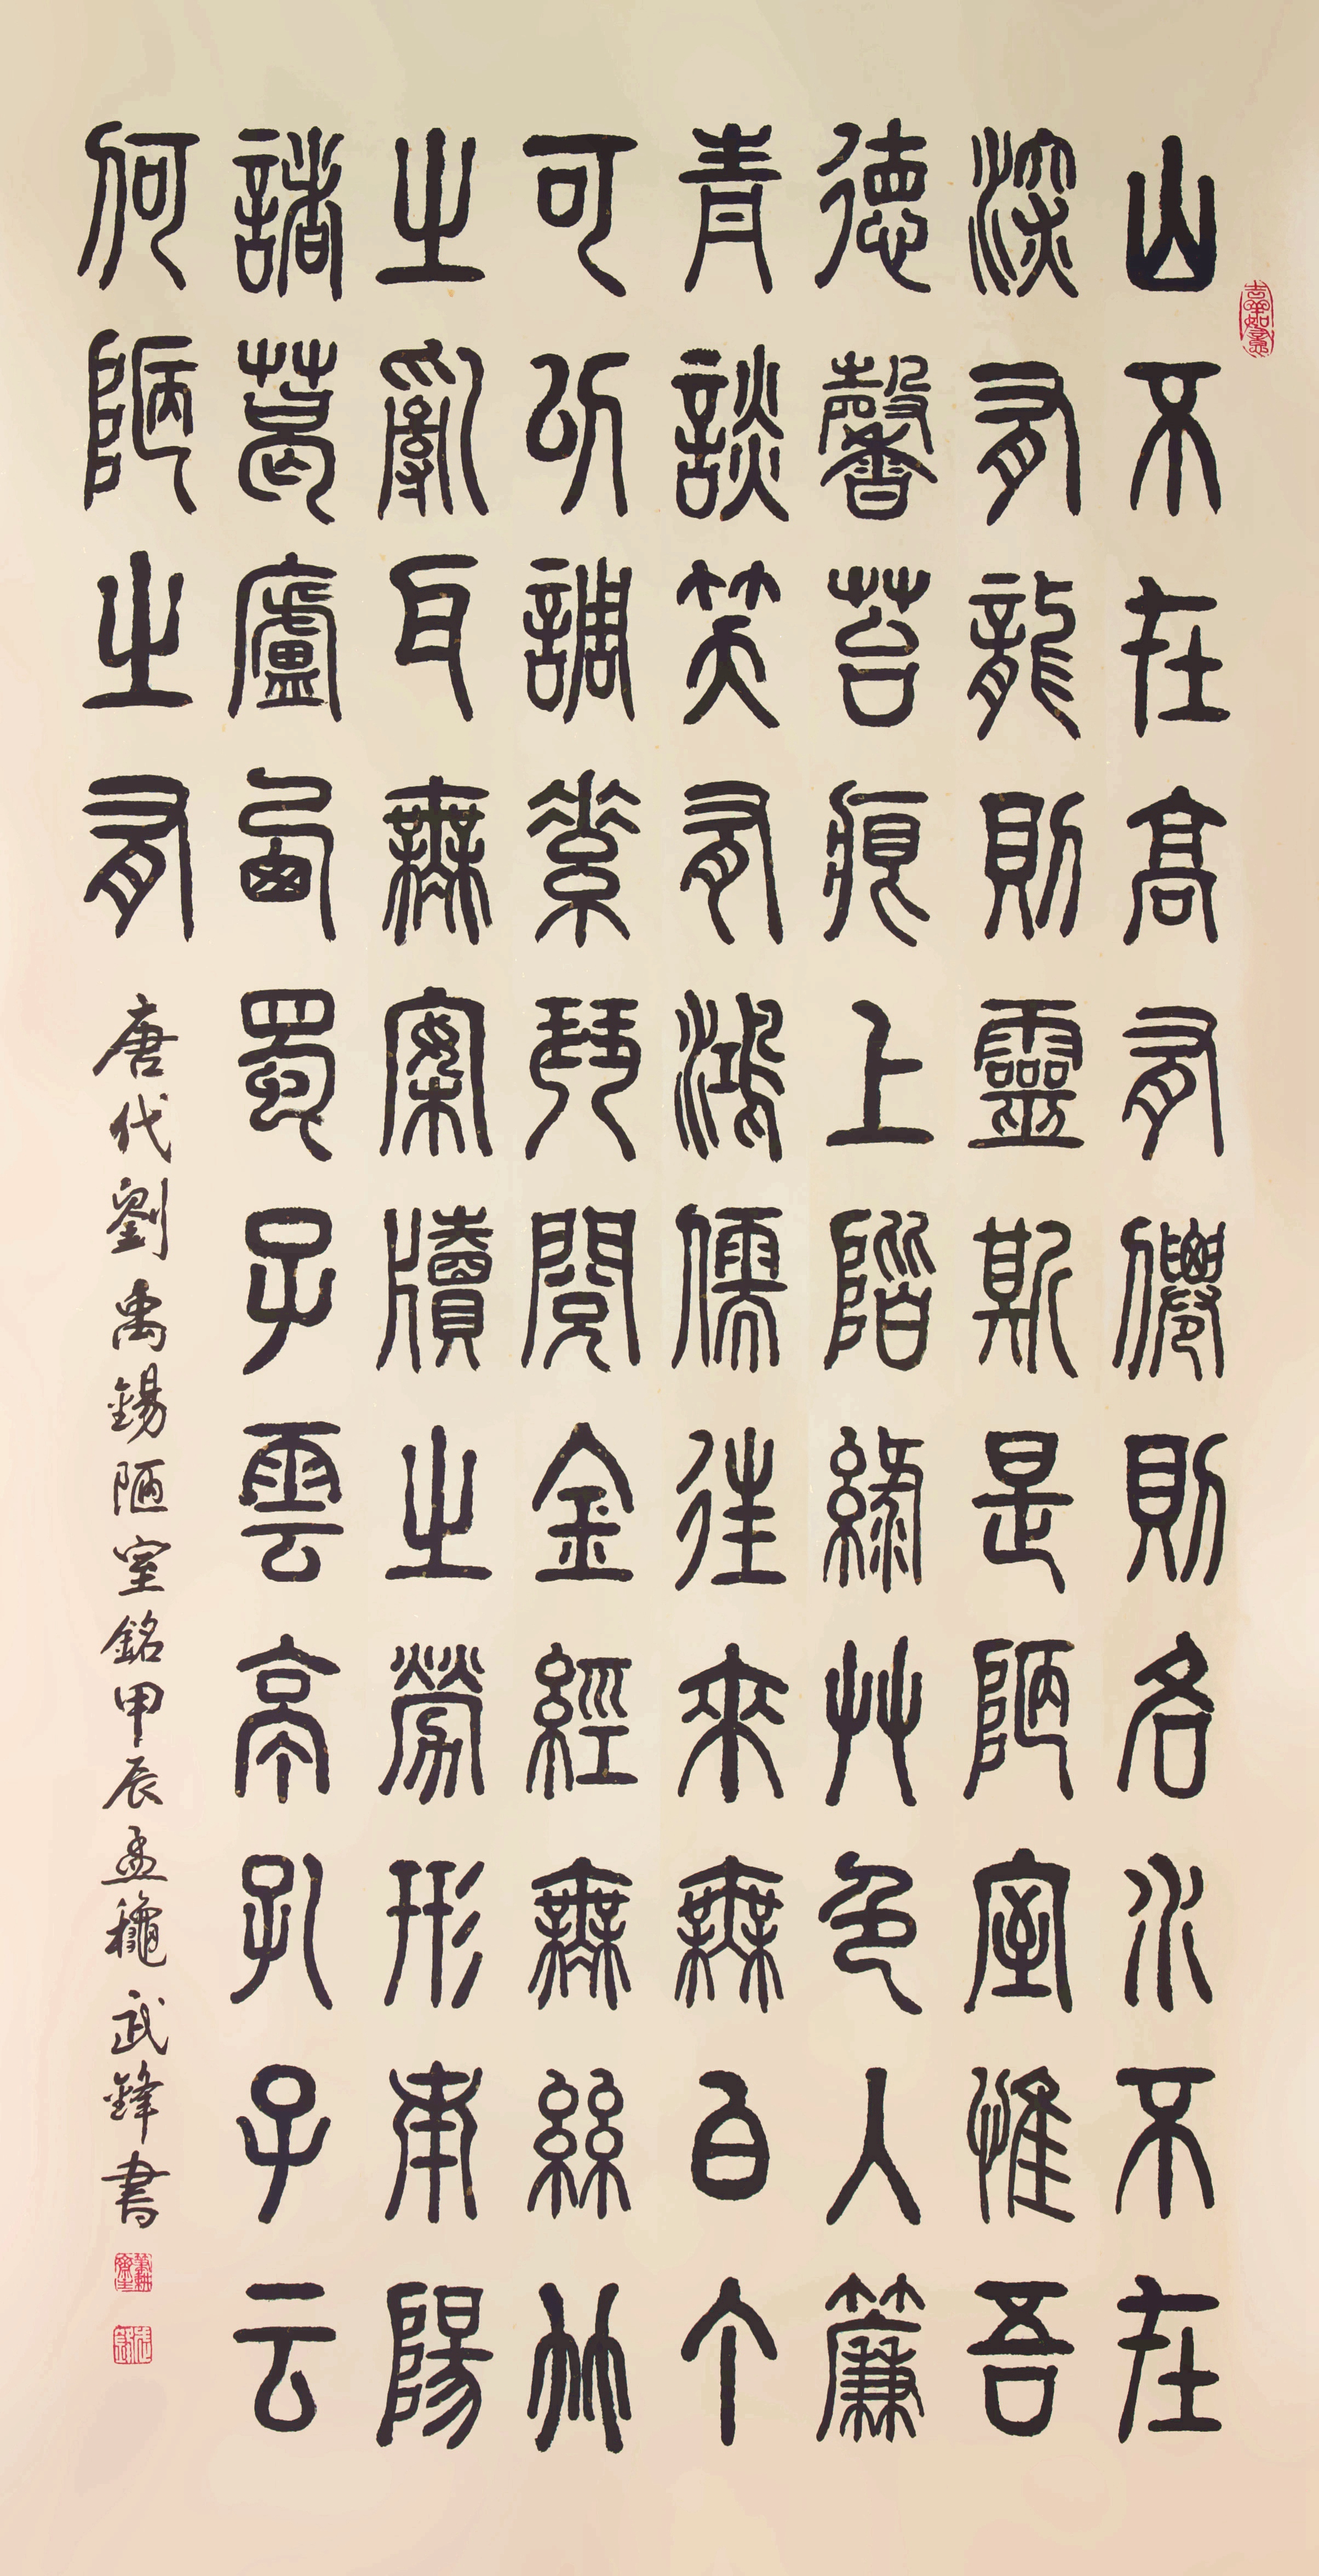 吉祥如意
山不在高有僊則名水不在
深有龍則靈斯是陋室惟吾
德馨苔痕上階綠艸色入簾
青談笑有鴻儒往來無白丁
可以調素琴閱金經無絲竹
之亂耳無案牘之勞形南陽
諸葛廬西蜀子雲亭孔子云
何陋之有
唐代劉禹錫陋室銘甲辰孟龝武鋒書